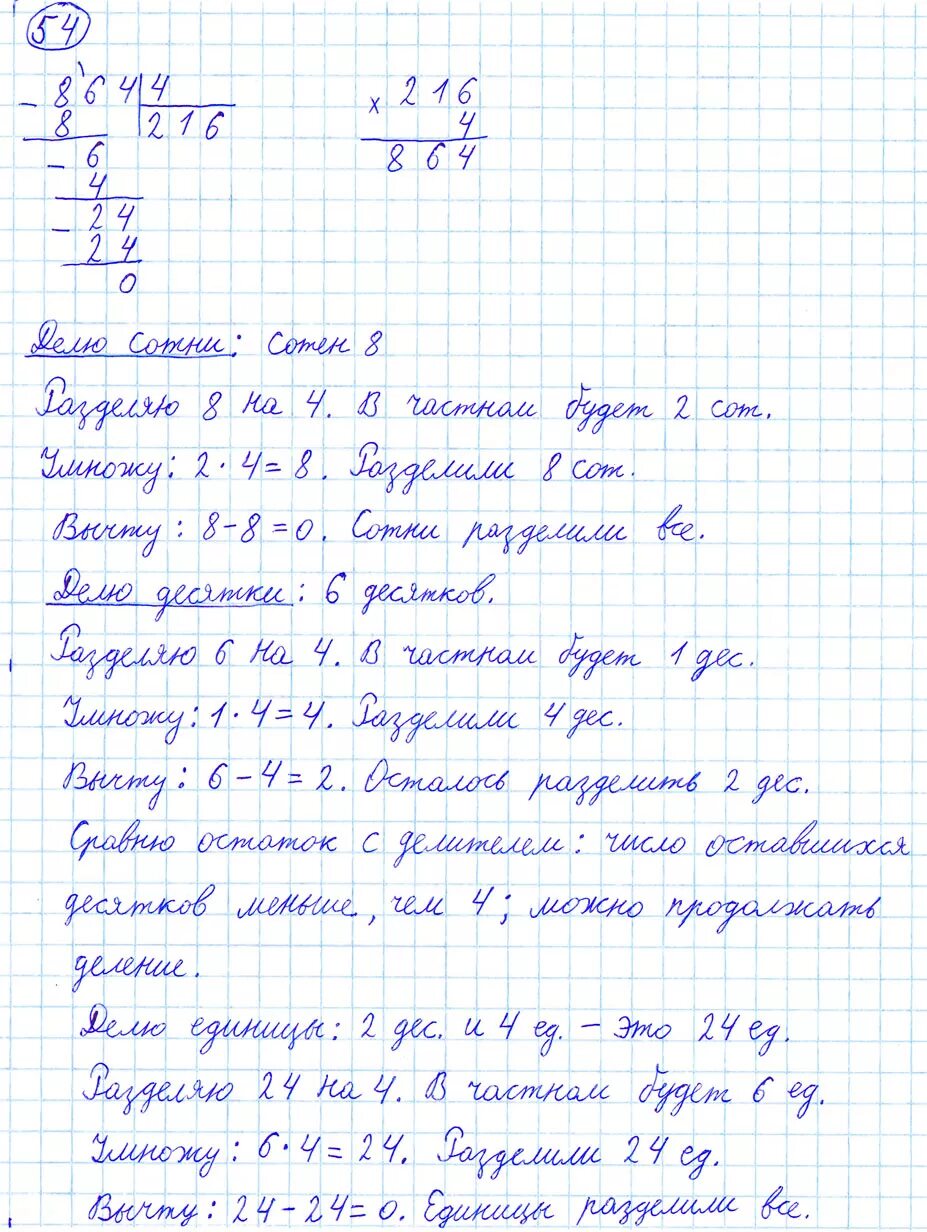 54
- 864 | 4
8 | 216
- 6
4
- 24
24
0
× 216
4
864
Делю сотни: Сотен 8
Разделяю 8 на 4. В частном будет 2 сот.
Умножу: 2 · 4 = 8. Разделили 8 сот.
Вычту: 8 - 8 = 0. Сотни разделили все.
Делю десятки: 6 десятков.
Разделяю 6 на 4. В частном будет 1 дес.
Умножу: 1 · 4 = 4. Разделили 4 дес.
Вычту: 6 - 4 = 2. Осталось разделить 2 дес.
Сравню остаток с делителем: число оставшихся
десятков меньше, чем 4; можно продолжать
деление.
Делю единицы: 2 дес. и 4 ед. - это 24 ед.
Разделяю 24 на 4. В частном будет 6 ед.
Умножу: 6 · 4 = 24. Разделили 24 ед.
Вычту: 24 - 24 = 0. Единицы разделили все.